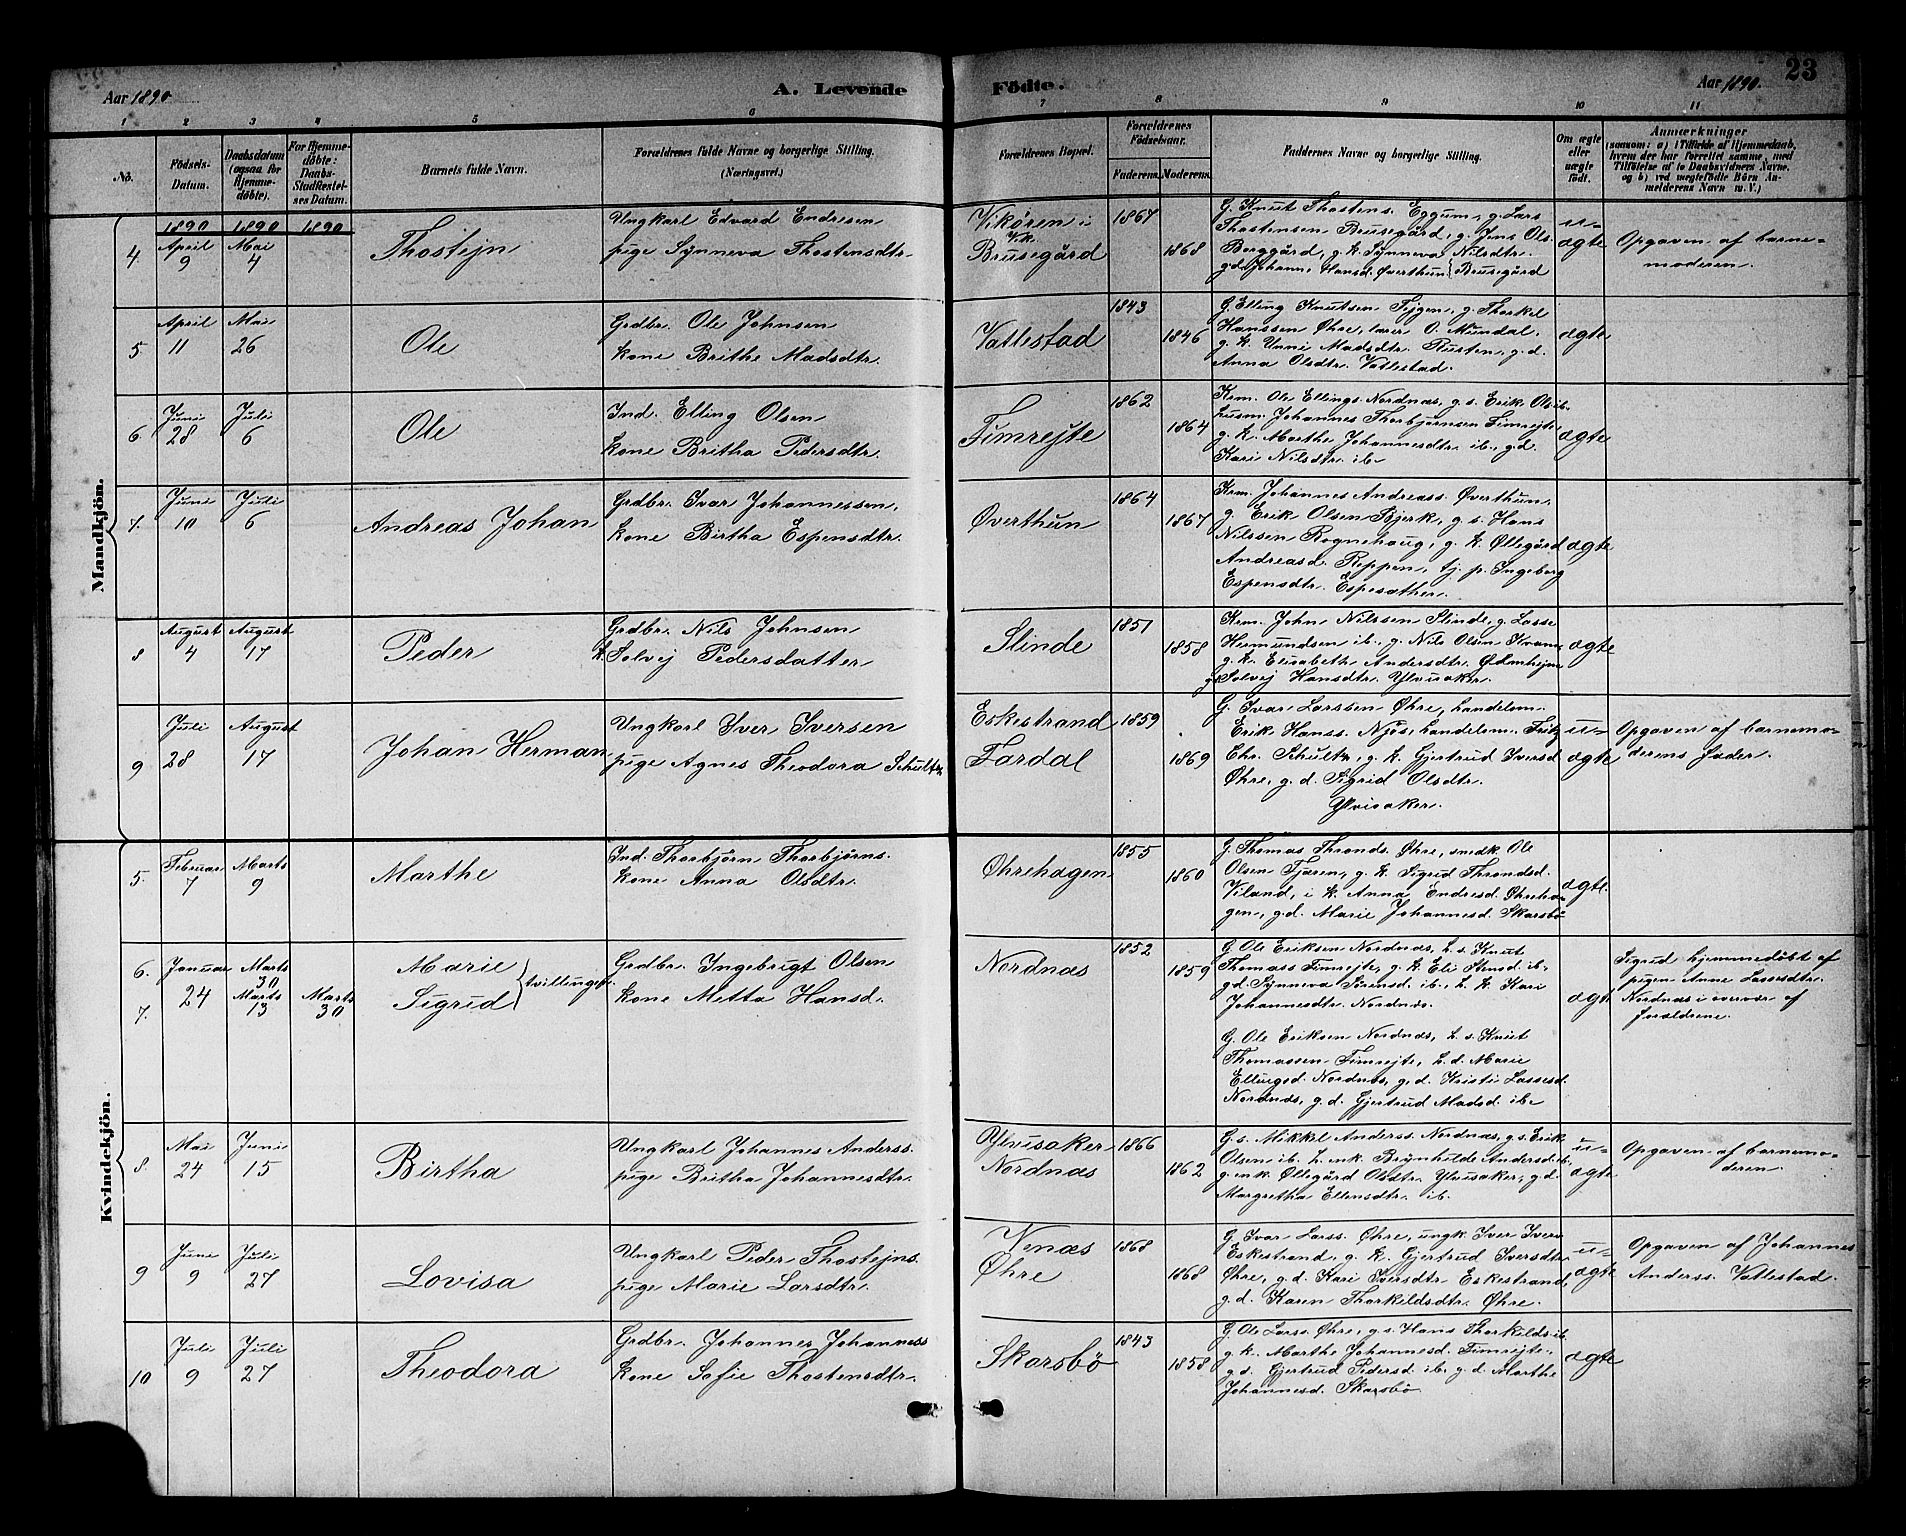 Aar 1890
A. Levende
Födte.
Aar 1890.
23
1 2 3 4 5 6 7 8 9 10 11
No.
Födsels-
Datum.
Daabsdatum
(ogsaa for
Hjemme-
döbte).
For Hjemme-
döbte:
Daabs-
Stadfæstel-
ses Datum.
Barnets fulde Navn.
Forældrenes fulde Navne og borgerlige Stilling.
(Næringsvei.)
Forældrenes Bopæl.
Forældrenes
Födselsaar.
Faderens.
Moderens.
Faddernes Navne og borgerlige Stilling.
Om ægte
eller
uægte
födt.
Anmærkninger
(saasom: a) i Tilfælde af Hjemmedaab,
hvem der har forrettet samme, med
Tilföielse af to Daabsvidners Navne,
og b) ved uægtefödte Börn An-
melderens Navn m. V.)
Mandkjön.
1890 1890 1890
4. April 9 Mai 4
Thostejn
Ungkarl Edvard Endresen
pige Synneva Thostensdtr.
Vikøren i
Vik.
Brusegård
1867
1868
G. Knut Thostens. Eggum, g. Lars
Thostensen Brusegård, g. Jens Ols.
Borggård, g. k. Synneva Nilsdtr.
g.d. Johann. Hansd. Øverthun Brusegård
u-
ægte
Opgaven af barne-
moderen.
5. April 11 Mai 26
Ole
Grdbr. Ole Johnsen
kone Brithe Madsdtr.
Vatlestad
1843
1846
G. Elling Knutsen Fejgen, g. Thorkel
Hanssen Øhre, lærer O. Mundal.
g. k. Unni Madsdtr. Rusten, g. d.
Anna Olsdtr. Vatlestad.
ægte
6. Juni 28 Juli 6
Ole
Ind. Elling Olsen
kone Britha Pedersdtr.
Fimrejte
1862
1864
Krm. Ole Ellings. Nordnæs, g. s. Erik Ols. ib.
husm. Johannes Thorbjørnsen Fimrejte
g. k. Marthe Johannesdtr. ib., g.d.
Kari Nilsdtr. ib.
ægte
7. Juni 10 Juli 6
Andreas Johan
Grdbr. Ivar Johannessen,
kone Birtha Espensdtr.
Øverthun
1864
1867
Krm. Johannes Andreass. Øverthun,
g. Erik Olsen Bjerk, g. s. Hans
Nilssen Rognehaug, g. k. Øllegård
Andreasd. Reppen, tj. p. Ingeborg
Espensdtr. Espesæther.
ægte
8 August 4 August 17
Peder
Grdbr. Nils Johnsen
k. Solvej Pedersdatter
Slinde
1851
1858
Krm. John Nilssen Slinde, g. Lasse
Hermundsen ib., g. Nils Olsen Kvam
g. k. Elisabeth Andersdtr.
g. Solvej Hansdtr. Ylvisaker.
ægte
9 Juli 28 August 17
Johan Herman
Ungkarl Iver Iversen
pige Agnes Theodora Schultz
Eskestrand
Fardal
1859
1869
G. Ivar Larssen Øhre, handelsm.
Erik Hanss. Njøs, handelsm. Fritz
Chr. Schultz, g. k. Gjertrud Iversd
Øhre, g. d. Sigrid Olsdtr.
Ylvisaker.
u-
ægte
Opgaven af barnemo-
derens fader.
Kvindekjön.
5. Februar 7 Marts 9
Marthe
Ind. Thorbjørn Thorbjørns.
kone Anna Olsdtr.
Øhrehagen
1855
1860
G. Thomas Thronds. Øhre, smedk. Ole
Olsen Tjæren, g. k. Sigrid Throndsd.
Viland, i. k. Anna Endresd. Øhreha-
gen, g.d. Marie Johannesd. Skarsbø
ægte.
6. 7. Januar 24 Marts 30 Marts 13 Marts 30
Marie
Sigrid
tvillinger.
Grdbr. Ingebrigt Olsen
kone Metta Hansd.
Nordnæs
1852
1859
G. Ole Eriksen Nordnæs, h. s. Knut
Thomass Fimrejte, g. k. Eli Stensd. ib.
g.d. Synneva Sørensd. ib., h. k. Kari
Johannesdtr. Nordnæs.
G. Ole Eriksen Nordnæs, h. s. Knut
Thomassen Fimrejte, h. d. Marie
Ellingsd. Nordnæs, g. d. Kristi Lassesd.
Nordnæs, g. d. Gjertrud Madsd. ib.
ægt.
Sigrid hjemmedøbt af
pigen Anne Lassesdtr.
Nordnæs i overvær af
forældrene.
8. Mai 24 Juni 15
Birtha
Ungkarl Johannes Anderss.
pige Britha Johannesdtr.
Ylvisaker
Nordnæs
1866
1862
G. s. Mikkl Anderss. Nordnæs, g. s. Erik
Olsen ib. h. enk. Brynhilde Andersd. ib.
g. enk. Øllegård Olsdtr. Ylvisaker, g. d.
Margretha Ellensdtr. ib.
u-
ægte
Opgaven af barnemo-
deren.
9 Juni 9 Juli 27
Lovisa
Ungkarl Peder Thostejns.
pige Marie Larsdtr.
Venæs
Øhre
1868
1868
G. Ivar Larss. Øhre, ungk. Iver Ivers.
Eskestrand, g. k. Gjertrud Iversdtr.
Øhre, g. d. Kari Iversdtr. Eskestrand,
g. d. Karen Thorkildsdtr. Øhre.
u-
ægte
Opgaven af Johannes
Anderss. Vatlestad.
10 Juli 9 Juli 27
Theodora
Grdbr. Johannes Johanness
kone Sofie Thostensdtr.
Skarsbø
1843
1858
G. Ole Larss. Øhre, g. s. Hans Thorkilds. ib.
g. k. Marthe Johannesd. Fimrejte,
g. d. Gjertrud Pedersd. ib. g. d. Marthe
Johannesd. Skarsbø
ægte